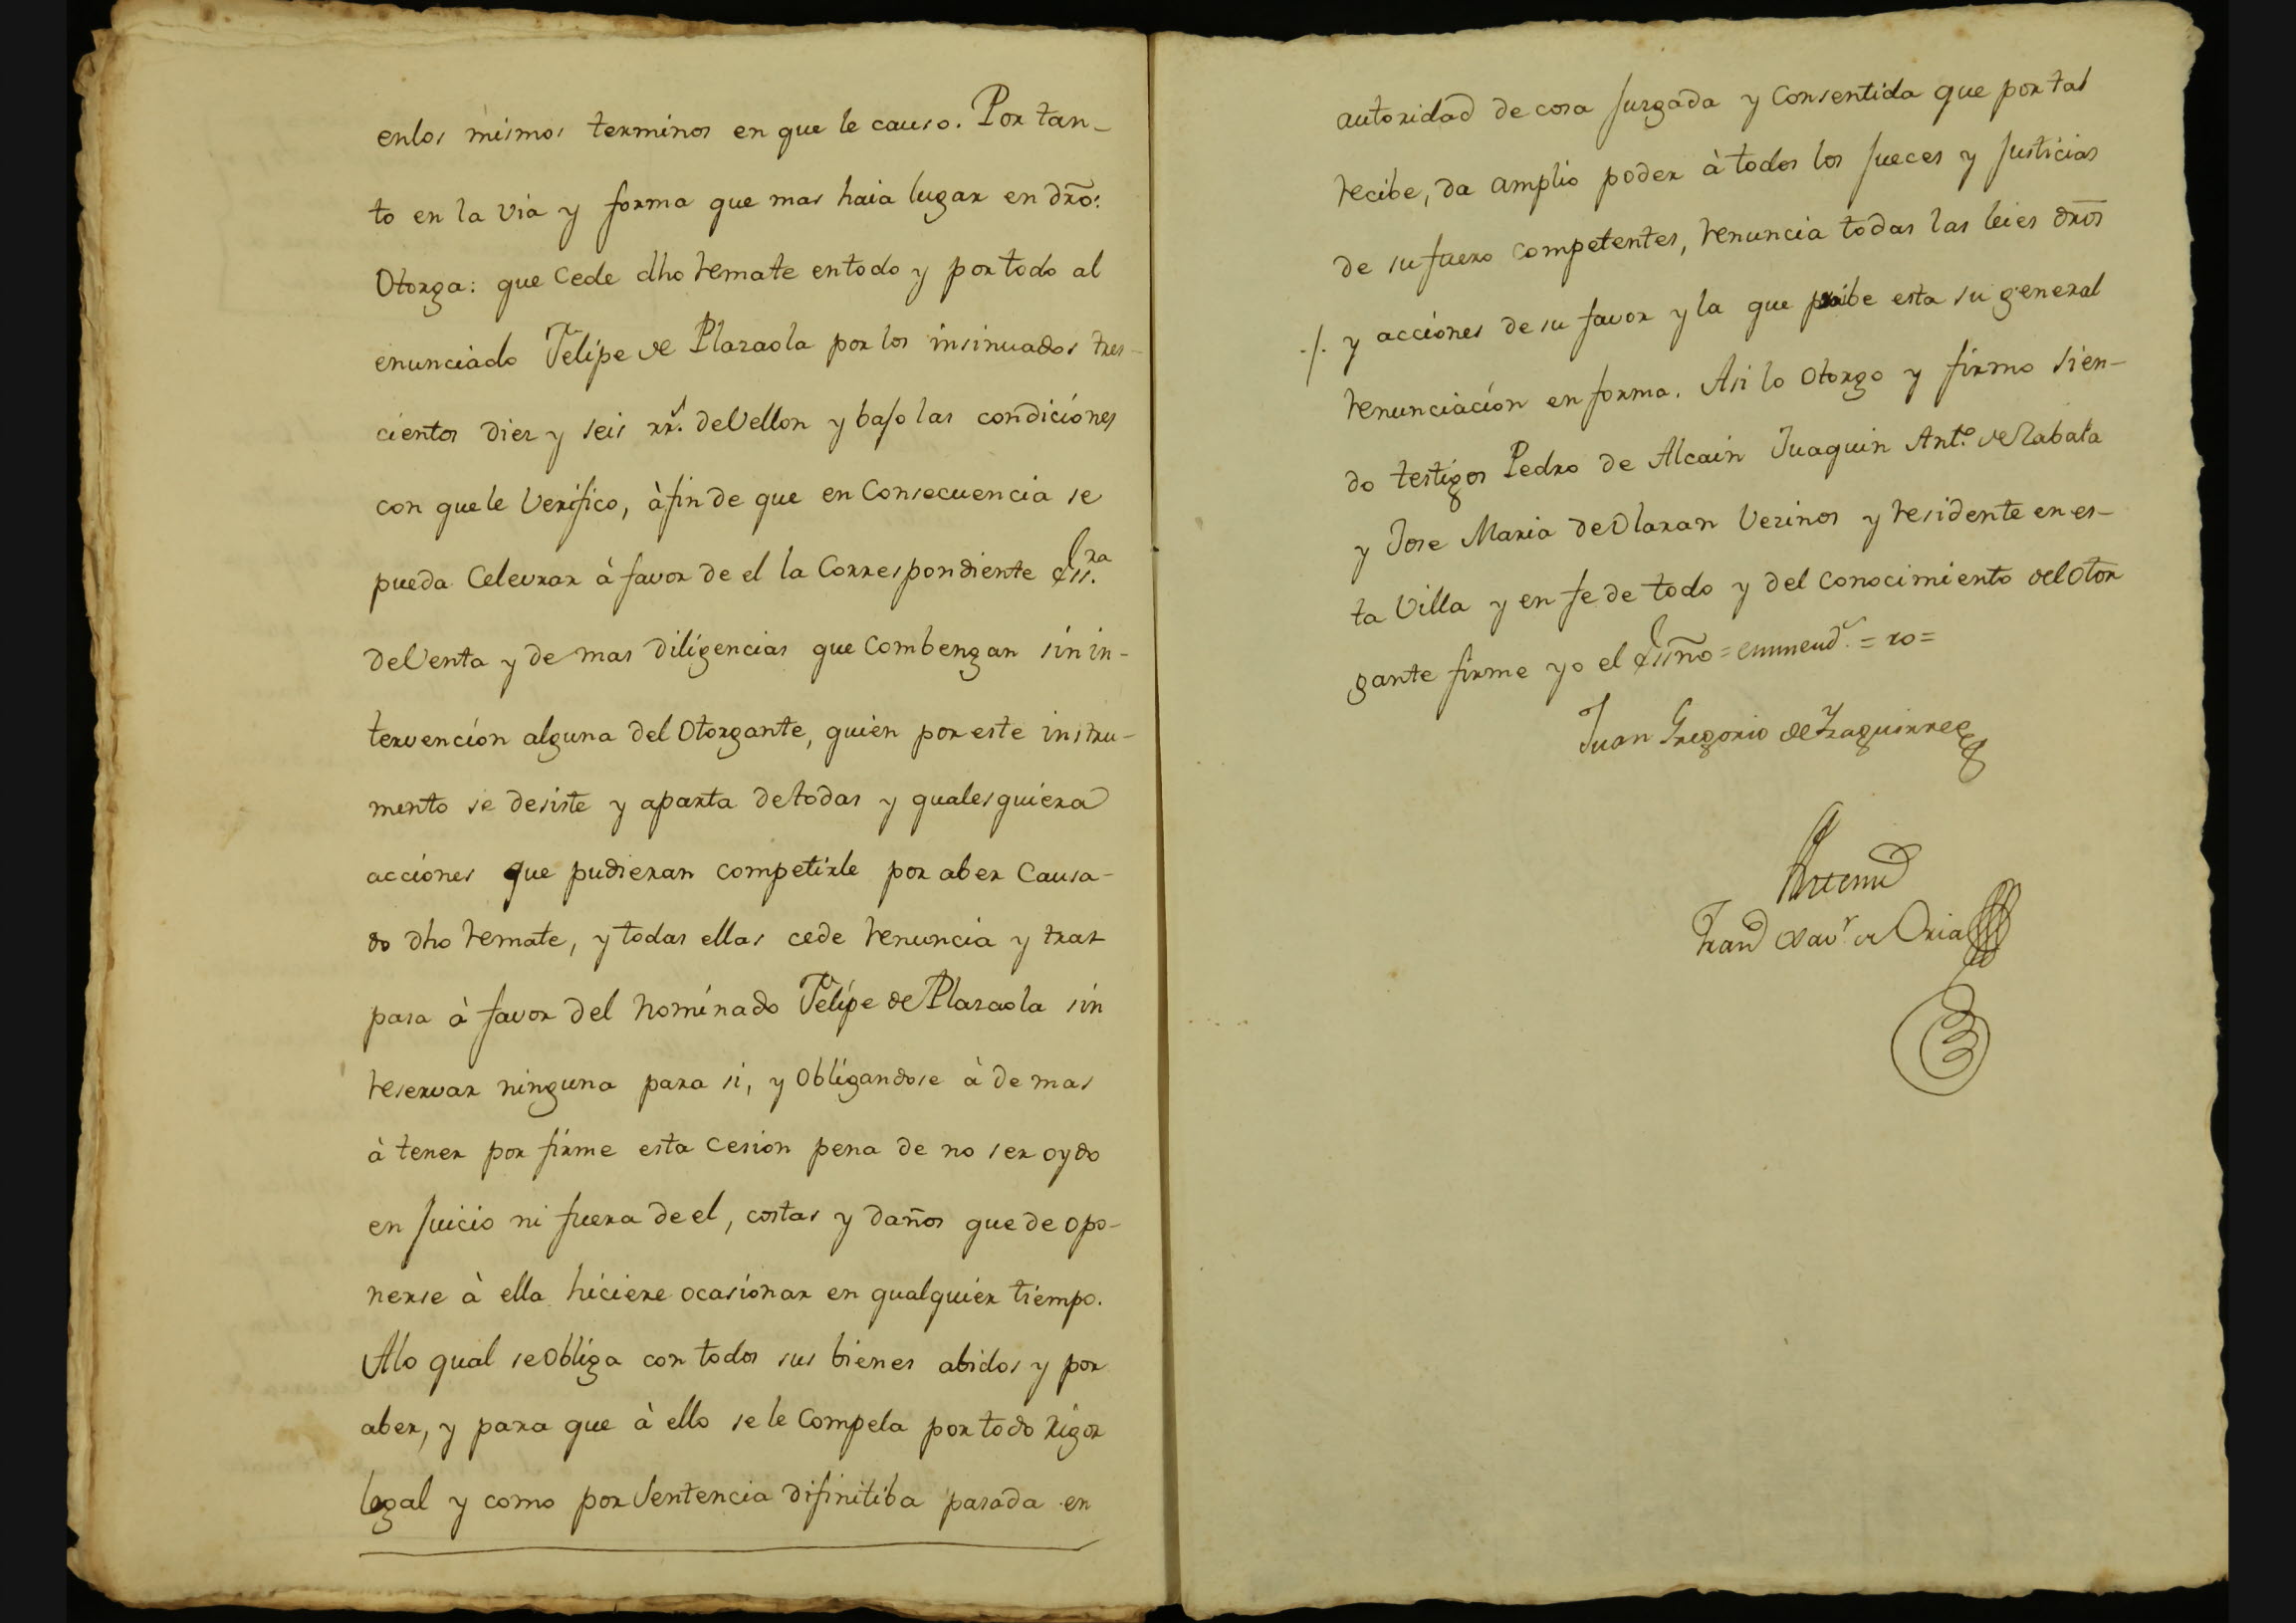 enlos mismos terminos en que le causo. Por tan-
to en la via y forma que mas haia lugar en dr̃o:
Otorga: que Cede dho remate entodo y por todo al
enunciado Felipe de Plazaola por los insinuados tres-
cientos diez y seis rr.s deVellon y bajo las condiciones
con quele Verifico, àfin de que en Consecuencia se
pueda Celevrar à favor de el la Correspondiente Ess.ra
deVenta y de mas diligencias que Combengan sin in-
tervención alguna del Otorgante, quien por este instru-
mento se desiste y aparta detodas y qualesquiera
acciones que pudieran competirle por aber Causa-
do dho remate, y todas ellas cede renuncia y tras-
pasa à favor del nominado Felipe de Plazaola sin
reservar ninguna para si, y Obligandose à de mas
à tener por firme esta cesion pena de no ser oydo
en Juicio ni fuera de el, costas y daños que de opo-
nerse à ella hiciere ocasionar en qualquier tiempo.
Alo qual seObliga con todos sus bienes abidos y por
aber, y para que à ello se le Compela por todo rigor
legal y como por Sentencia difinitiba pasada en
autoridad de cosa Juzgada y Consentida que por tal
recibe, da amplio poder à todos los Jueces y Justicias
de su fuero Competentes, renuncia todas las leies dr̃os
./. y acciones de su favor y la que proibe esta su general
renunciación en forma. Asi lo Otorgo y firmo Sien-
do testigos Pedro de Alcain Juaquin Ant.o de Zabala
y Jose Maria deOlaran Vezinos y residente en es-
ta Villa y en fe de todo y del Conocimiento del Otor
gante firme yo el Essño = emmend.o = ro =
Juan Gregorio de Yzaguirre
Antemi
Fran.co Xav.r de Oria